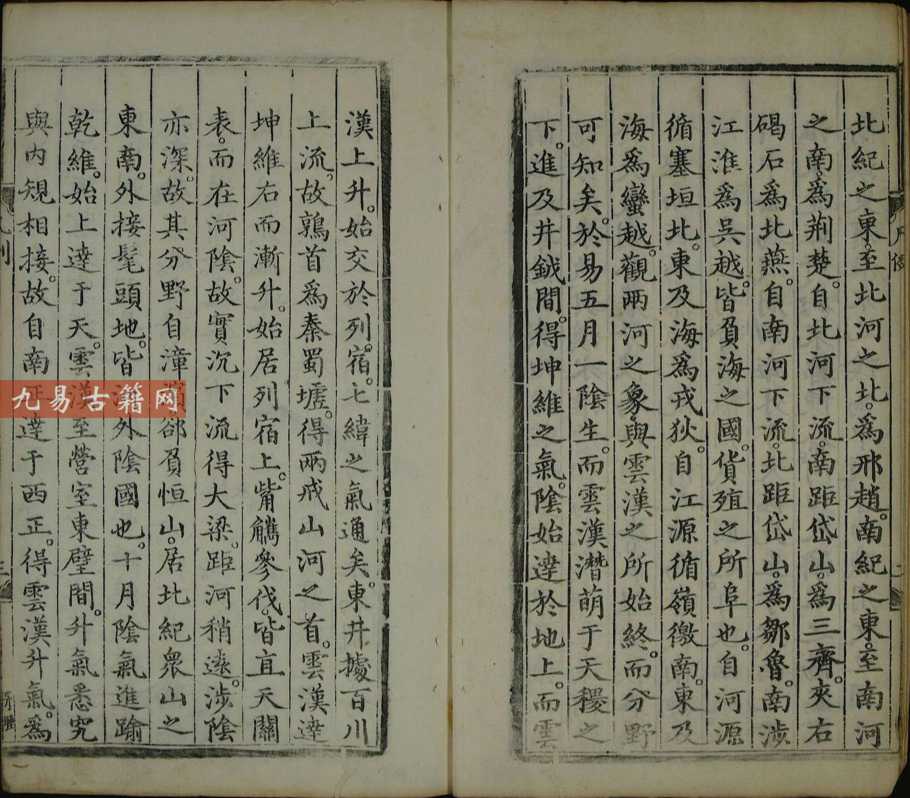 北紀之東。至北河之北。爲邢趙。南紀之東。至南河
之南。爲荆楚。自北河下流。南距岱山。爲三齊。夾右
碣石。爲北燕。自南河下流。北距岱山。爲鄒魯。南涉
江淮。爲吳越。皆負海之國。貨殖之所阜也。自河源
循塞垣北。東及海爲戎狄。自江源循嶺徼南。東及
海爲蠻越。觀兩河之象。與雲漢之所始終。而分野
可知矣。於易五月一陰生。而雲漢潛萌于天稷之
下。進及井鉞間。得坤維之氣。陰始達於地上。而雲
漢上升。始交於列宿。七緯之氣通矣。東井據百川
上流。故鶉首爲秦蜀墟。得兩戒山河之首。雲漢達
坤維右而漸升。始居列宿上。觜觿參伐。皆直天關
表。而在河陰。故實沉下流得大梁。距河稍遠。涉陰
亦深。故其分野自漳濱郤負恒山。居北紀衆山之
東南。外接髦頭地。皆河外陰國也。十月陰氣進踰
乾維。始上達于天。雲漢至營室東壁間。升氣悉究
與內規相接。故自南正達于西正。得雲漢升氣。爲
三
九易古籍网